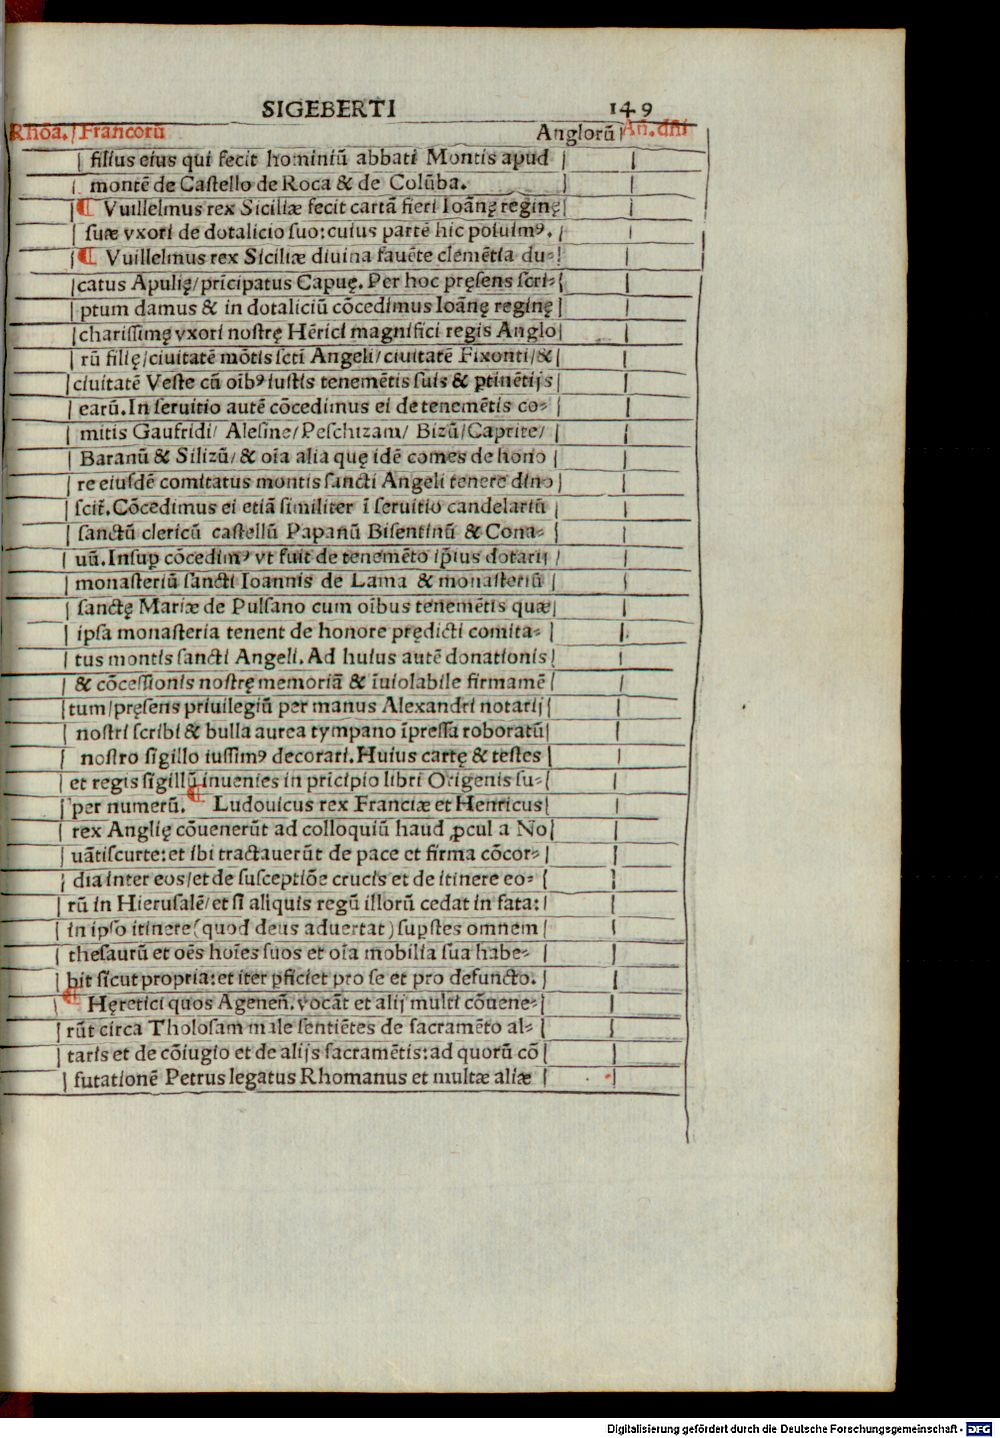 SIGEBERTI 149
Rhõa. / Francorũ Anglorũ Añ. dñi
filius eius qui fecit hominiũ abbati Montis apud
montẽ de Castello de Roca & de Colũba.
¶ Vuillelmus rex Siciliæ fecit cartã fieri Ioãnę reginę
suæ vxori de dotalicio suo: cuius partẽ hic posuimꝰ.
¶ Vuillelmus rex Siciliæ diuina fauẽte clemẽtia du-
catus Apulię/ prĩcipatus Capuę. Per hoc pręsens scri-
ptum damus & in dotaliciũ cõcedimus Ioãnę reginę
charissimę vxori nostrę Hẽrici magnifici regis Anglo
rũ filię/ ciuitatẽ mõtis scti Angeli/ ciuitatẽ Fixonti/ &
ciuitatẽ Veste cũ oĩbꝰ iustis tenemẽtis suis & ꝑtinẽtijs
earũ. In seruitio autẽ cõcedimus ei de tenemẽtis co-
mitis Gaufridi/ Alesine/ Peschizam/ Bizũ/ Caprite/
Baranũ & Silizũ/ & oĩa alia quę idẽ comes de hono
re eiusdẽ comitatus montis sancti Angeli tenere dino
scit̃. Cõcedimus ei etiã similiter ĩ seruitio candelariũ
sanctũ clericũ castellũ Papanũ Bisentinũ & Cona-
uũ. Insuꝑ cõcedimꝰ vt fuit de tenemẽto ip̃ius dotarij
monasteriũ sancti Ioannis de Lama & monasteriũ
sanctę Mariæ de Pulsano cum oĩbus tenemẽtis quæ
ipsa monasteria tenent de honore prędicti comita-
tus montis sancti Angeli. Ad huius autẽ donationis
& cõcessionis nostrę memoriã & ĩuiolabile firmamẽ
tum/ pręsens priuilegiũ per manus Alexandri notarij
nostri scribi & bulla aurea tympano ĩpressa roboratũ
nostro sigillo iussimꝰ decorari. Huius cartę & testes
et regis sigillũ inuenies in prĩcipio libri Origenis su-
per numerũ. ¶ Ludouicus rex Franciæ et Henricus
rex Anglię cõuenerũt ad colloquiũ haud ꝓcul a No
uãtiscurte: et ibi tractauerũt de pace et firma cõcor-
dia inter eos/ et de susceptiõe crucis et de itinere eo-
rũ in Hierusalẽ/ et si aliquis regũ illorũ cedat in fata:
in ipso itinere (quod deus aduertat) suꝑstes omnem
thesaurũ et oẽs hoĩes suos et oĩa mobilia sua habe-
bit sicut propria: et iter ꝑficiet pro se et pro defuncto.
¶ Hęretici quos Ageneñ. vocãt et alij multi cõuene-
rũt circa Tholosam male sentiẽtes de sacramẽto al-
taris et de cõiugio et de alijs sacramẽtis: ad quorũ cõ
futationẽ Petrus legatus Rhomanus et multæ aliæ
Digitalisierung gefördert durch die Deutsche Forschungsgemeinschaft - DFG